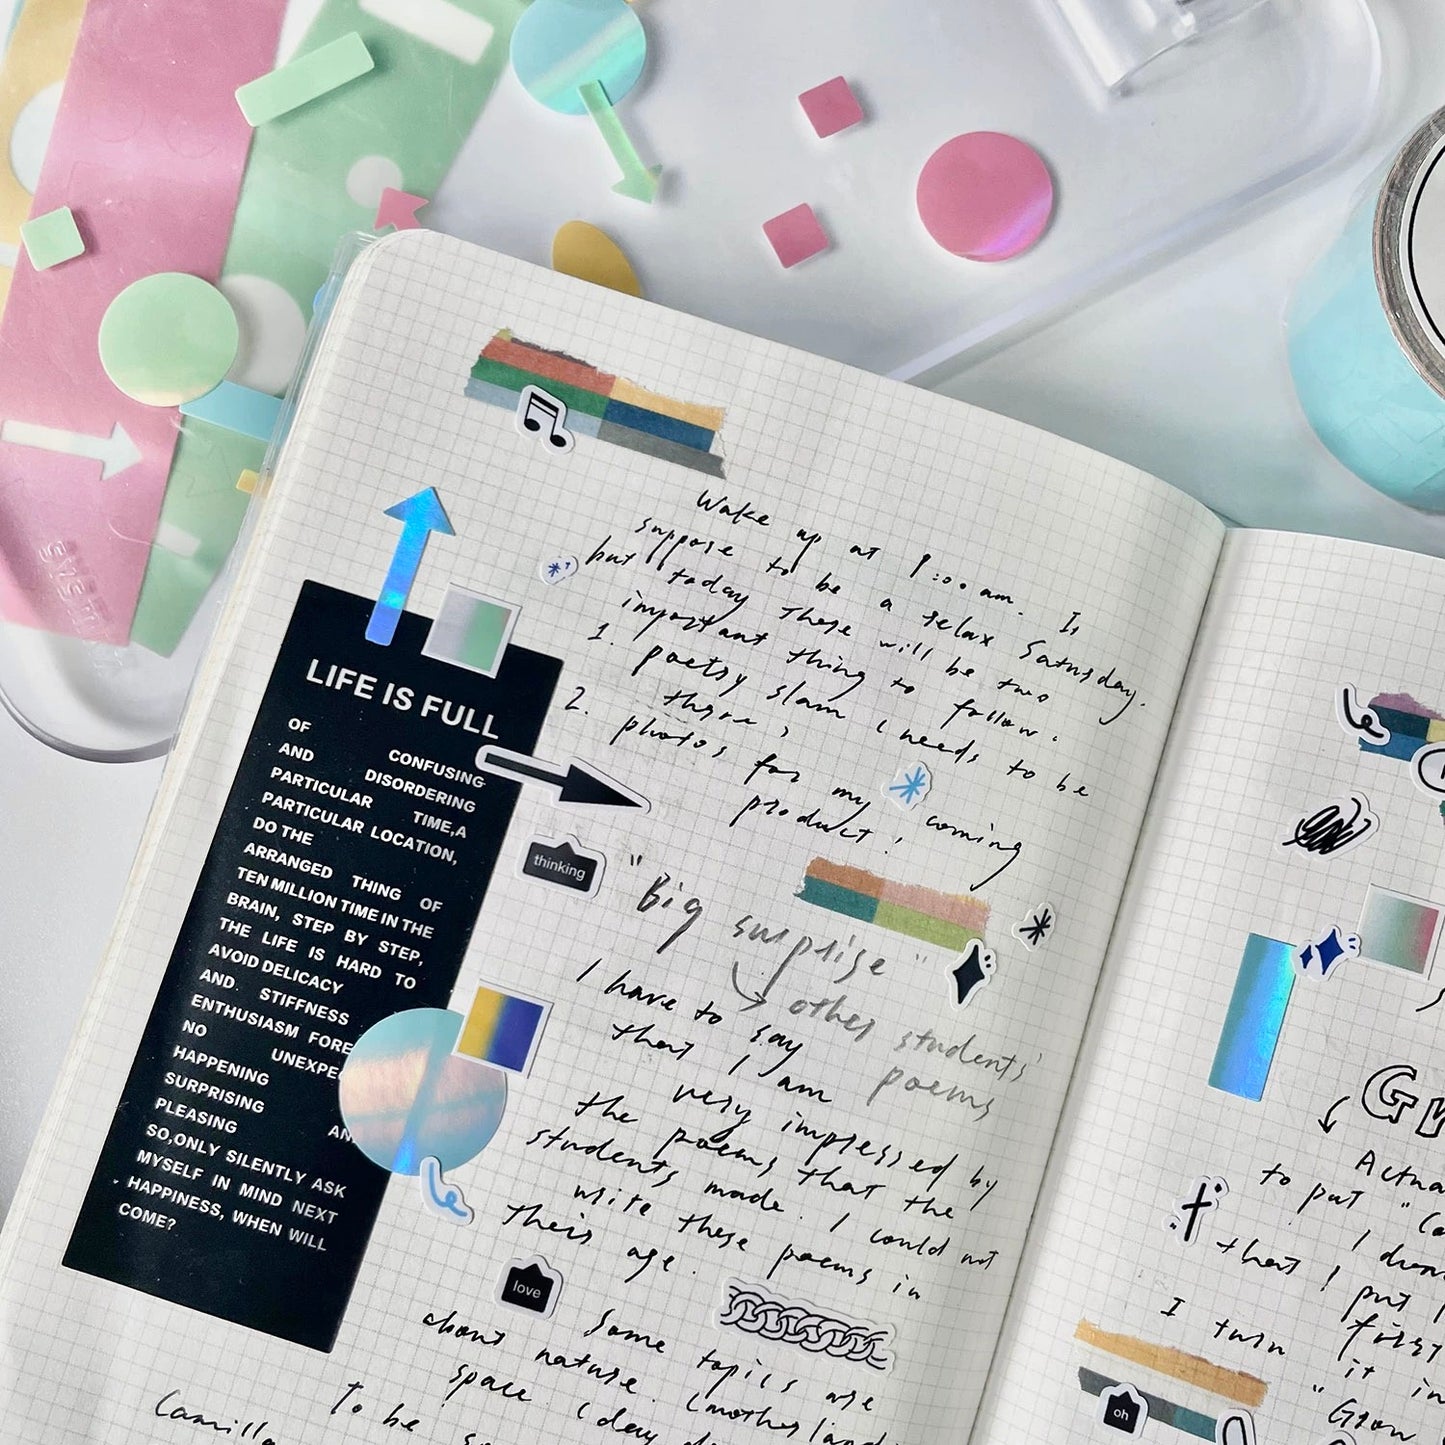 LIFE IS FULL
OF CONFUSING
AND DISORDERING
PARTICULAR TIME,A
PARTICULAR LOCATION,
DO THE
ARRANGED THING OF
TEN MILLION TIME IN THE
BRAIN, STEP BY STEP,
THE LIFE IS HARD TO
AVOID DELICACY
AND. STIFFNESS
ENTHUSIASM FORE
NO UNEXPE
HAPPENING
SURPRISING
PLEASING AN
SO,ONLY SILENTLY ASK
MYSELF IN MIND NEXT
HAPPINESS, WHEN WILL
COME?
Wake up at 9:00 am. It
suppose to be a relax Saturday.
but today there will be two
important thing to follow.
1. poetry slam (needs to be
there)
2. photos for my coming
product!
thinking
"Big surprise"
other students'
poems
I have to say
that I am
very impressed by
the poems that the
students made. I could not
write these poems in
their age.
love
Some topics are
about nature. (motherland
space. (day
To be
Camilla
Actua
to put "Co
that I put
first
I turn it in
"Grow
oh